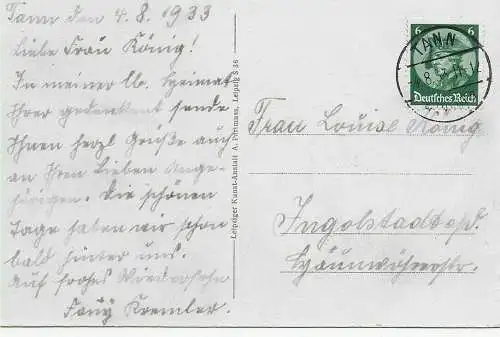 Tann den 4.8.1933
Liebe Frau König!
In meiner lb. Heimat
Ihrer gedenkend sende
Ihnen herzl. Grüße auch
an Ihren lieben Ange-
hörigen. Die schönen
Tage haben wir schon
bald hinter uns.
Auf frohes Wiedersehn
Fanny Kremler.
Leipziger Kunst-Anstalt A. Leipzig S 36
6 6
TANN
Deutsches Reich
Frau Louise König
Ingolstadt a/d.